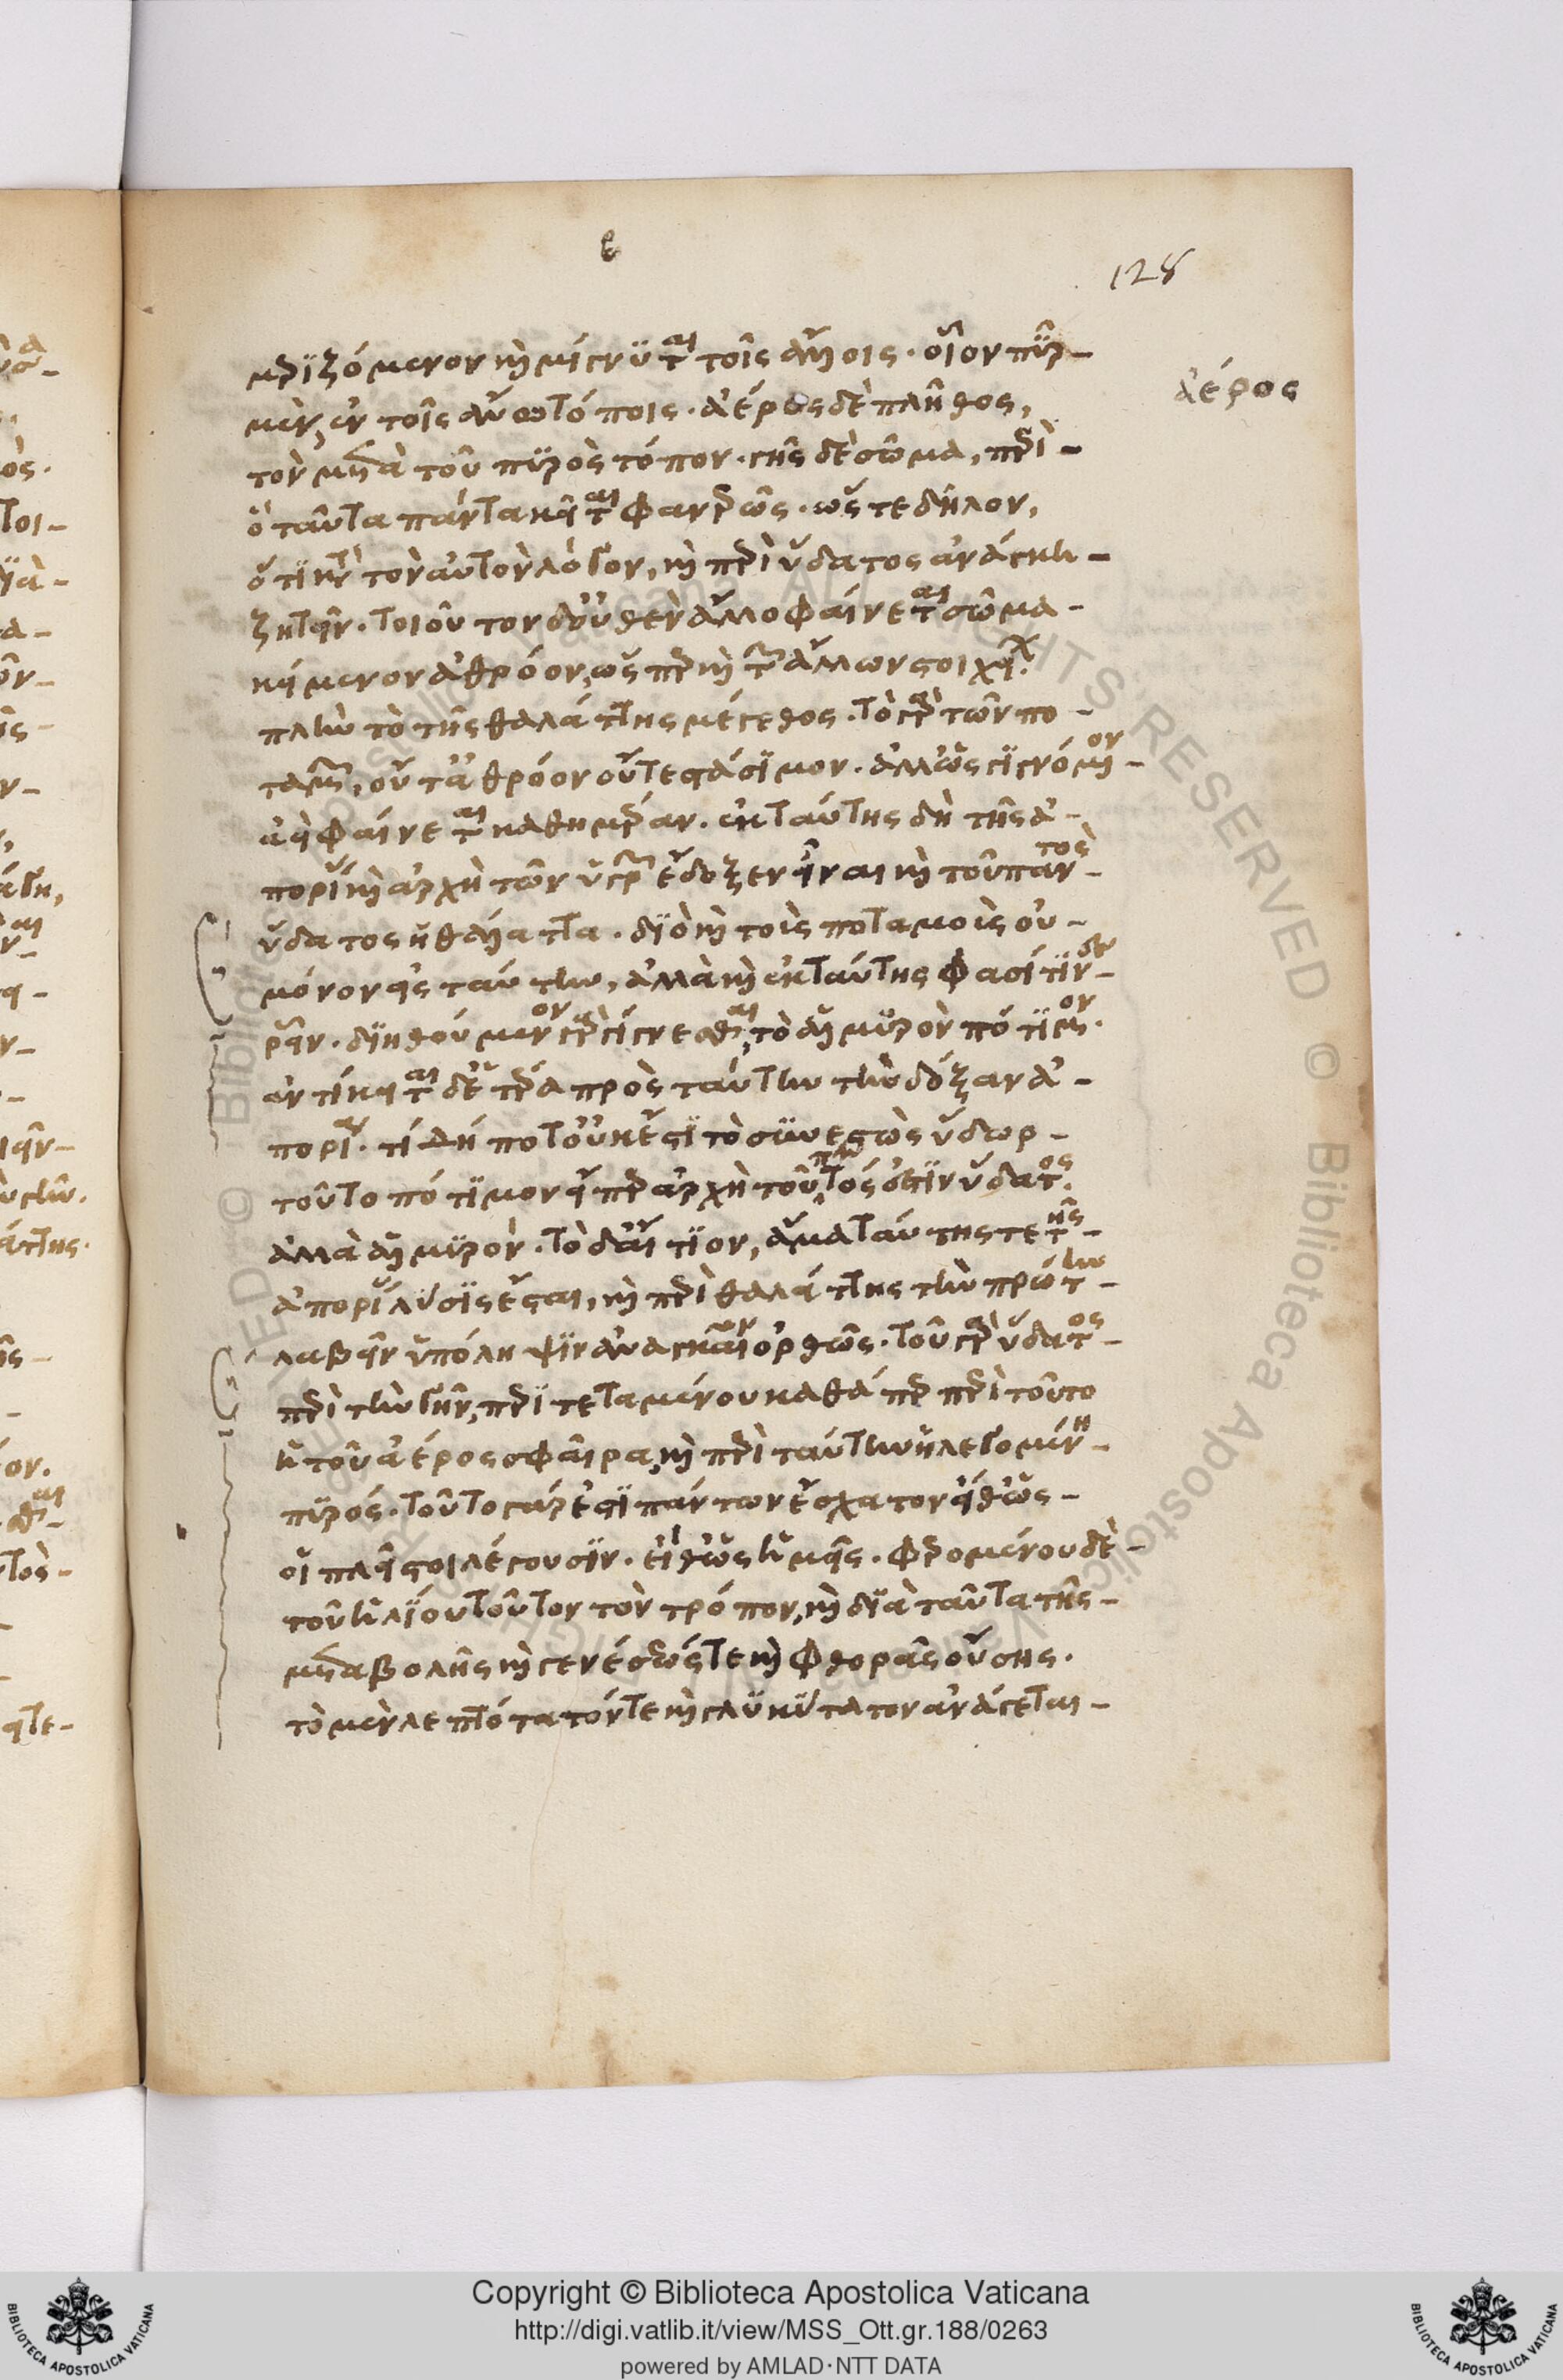 ε
128
μεριζόμενον καὶ μίγνυται τοῖς ἄλλοις· οἷον πῦρ
ἀέρος
μὲν, ἐν τοῖς ἄνω τόποις· ἀέρος δὲ πλῆθος,
τὸν μετὰ τοῦ πυρὸς τόπον· γῆς δὲ σῶμα, περὶ
ὃ ταῦτα πάντα κεῖται φανερῶς· ὥστε δῆλον,
ὅτι κατὰ τὸν αὐτὸν λόγον, καὶ περὶ ὕδατος ἀνάγκη
ζητεῖν· τοιοῦτον δ' οὐθὲν ἄλλο φαίνεται σῶμα
κείμενον ἀθρόον, ὥσπερ καὶ τῶν ἄλλων στοιχείων
πλὴν τὸ τῆς θαλάττης μέγεθος· τὸ γὰρ τῶν πο
ταμῶν, οὔτ' ἀθρόον οὔτε στάσιμον· ἀλλ' ὡς γιγνόμενον
ἀεὶ φαίνεται καθημέραν. ἐκ ταύτης δὴ τῆς ἀ
πορίας καὶ ἀρχὴ τῶν ὑγρῶν ἔδοξεν εἶναι καὶ τοῦ παντὸς
ὕδατος ἡ θάλαττα· διὸ καὶ τοὺς ποταμοὺς οὐ
μόνον εἰς ταύτην, ἀλλὰ καὶ ἐκ ταύτης φασί τινες
ῥεῖν· διηθούμενον γὰρ γίγνεσθαι, τὸ ἁλμυρὸν πότιμον·
ἀντίκειται δὲ ἑτέρα πρὸς ταύτην τὴν δόξαν ἀ
πορία· τί δή ποτ' οὐκ ἔστι τὸ συνεστὼς ὕδωρ
τοῦτο πότιμον εἴπερ ἀρχὴ τοῦ παντός ἐστιν ὕδατος·
ἀλλὰ ἁλμυρόν· τὸ δ' αἴτιον, ἅμα ταύτης τε τῆς
ἀπορίας λύσις ἔσται, καὶ περὶ θαλάττης τὴν πρώτην
λαβεῖν ὑπόληψιν ἀναγκαῖον ὀρθῶς· τοῦ γὰρ ὕδατος
περὶ τὴν γῆν, περιτεταμένου καθάπερ περὶ τοῦτο
ἡ τοῦ ἀέρος σφαῖρα, καὶ περὶ ταύτην ἡ λεγομένη
πυρός· τοῦτο γάρ ἐστι πάντων ἔσχατον εἴθ' ὡς
οἱ πλεῖστοι λέγουσιν· εἴθ' ὡς ἡμεῖς· φερομένου δὲ
τοῦ ἡλίου τοῦτον τὸν τρόπον, καὶ διὰ ταῦτα τῆς
μεταβολῆς καὶ γενέσεώς τε καὶ φθορᾶς οὔσης·
τὸ μὲν λεπτότατόν τε καὶ γλυκύτατον ἀνάγεται
Copyright © Biblioteca Apostolica Vaticana
http://digi.vatlib.it/view/MSS_Ott.gr.188/0263
powered by AMLAD·NTT DATA
BIBLIOTECA APOSTOLICA VATICANA
BIBLIOTECA APOSTOLICA VATICANA